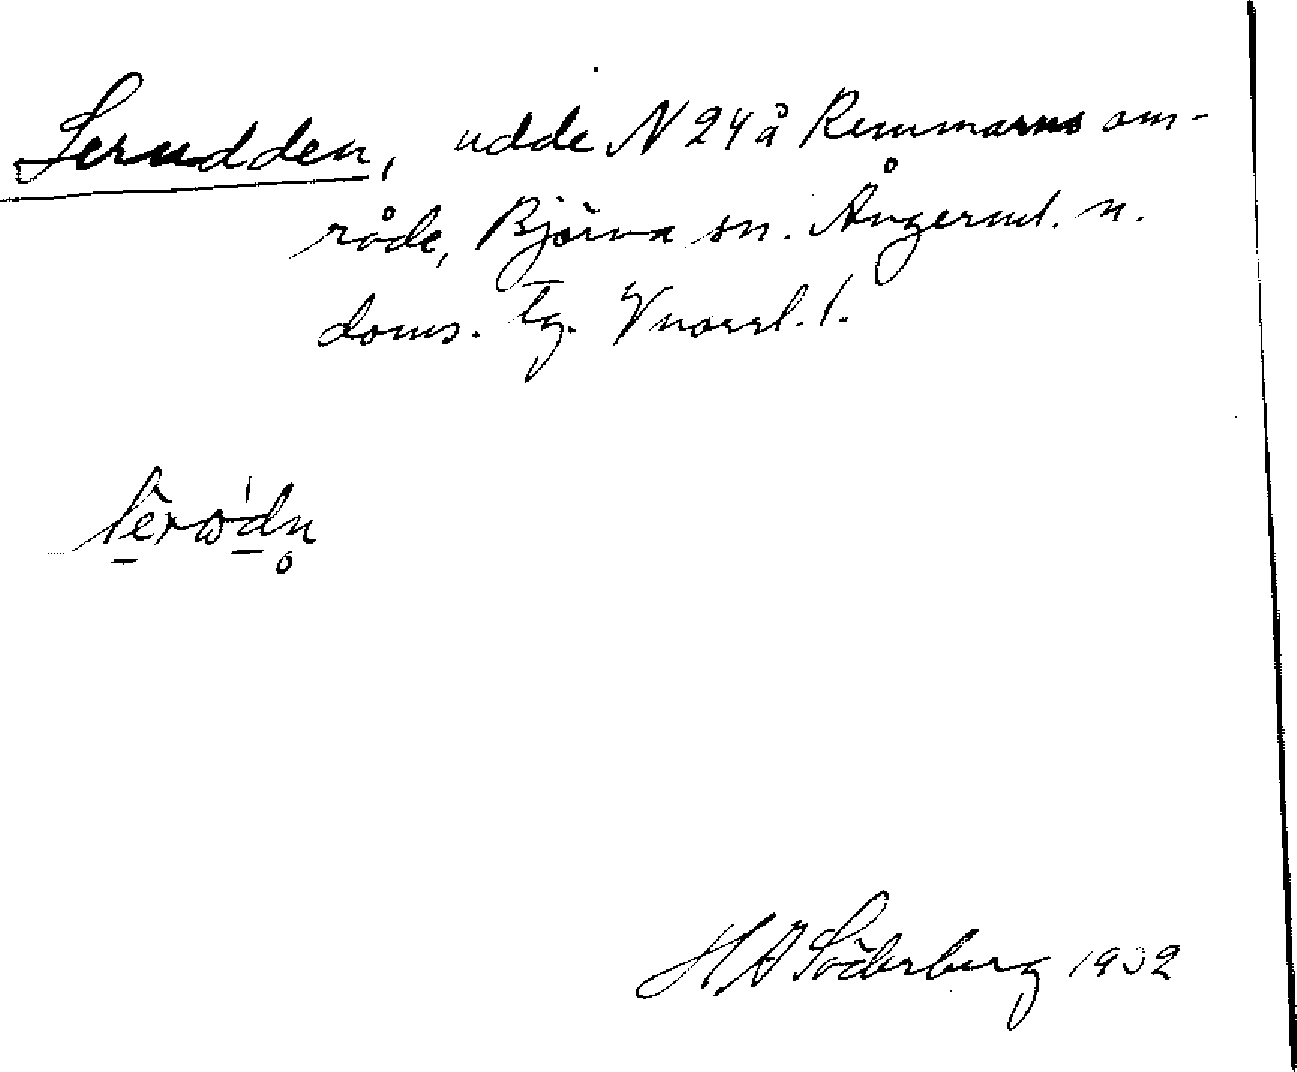 Lerudden, udde N 24 å Remmarns om-
råde, Björna sn. Ångerml. n.
doms. tg. Vnorrl. l.
lerωdn
H A Söderberg 1932